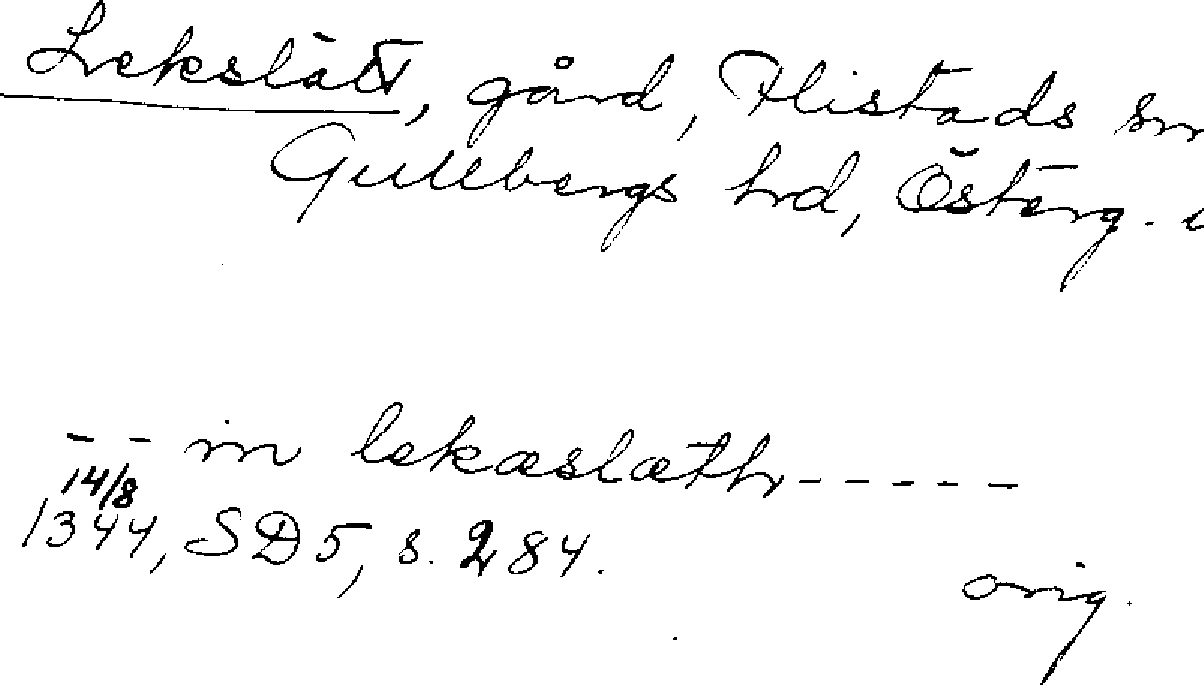 Lekslätt, gård, Flistads sn
Gullbergs hrd, Österg.
-- in lekæslæth-----
14/8
1344, SD 5, s. 284.
orig.